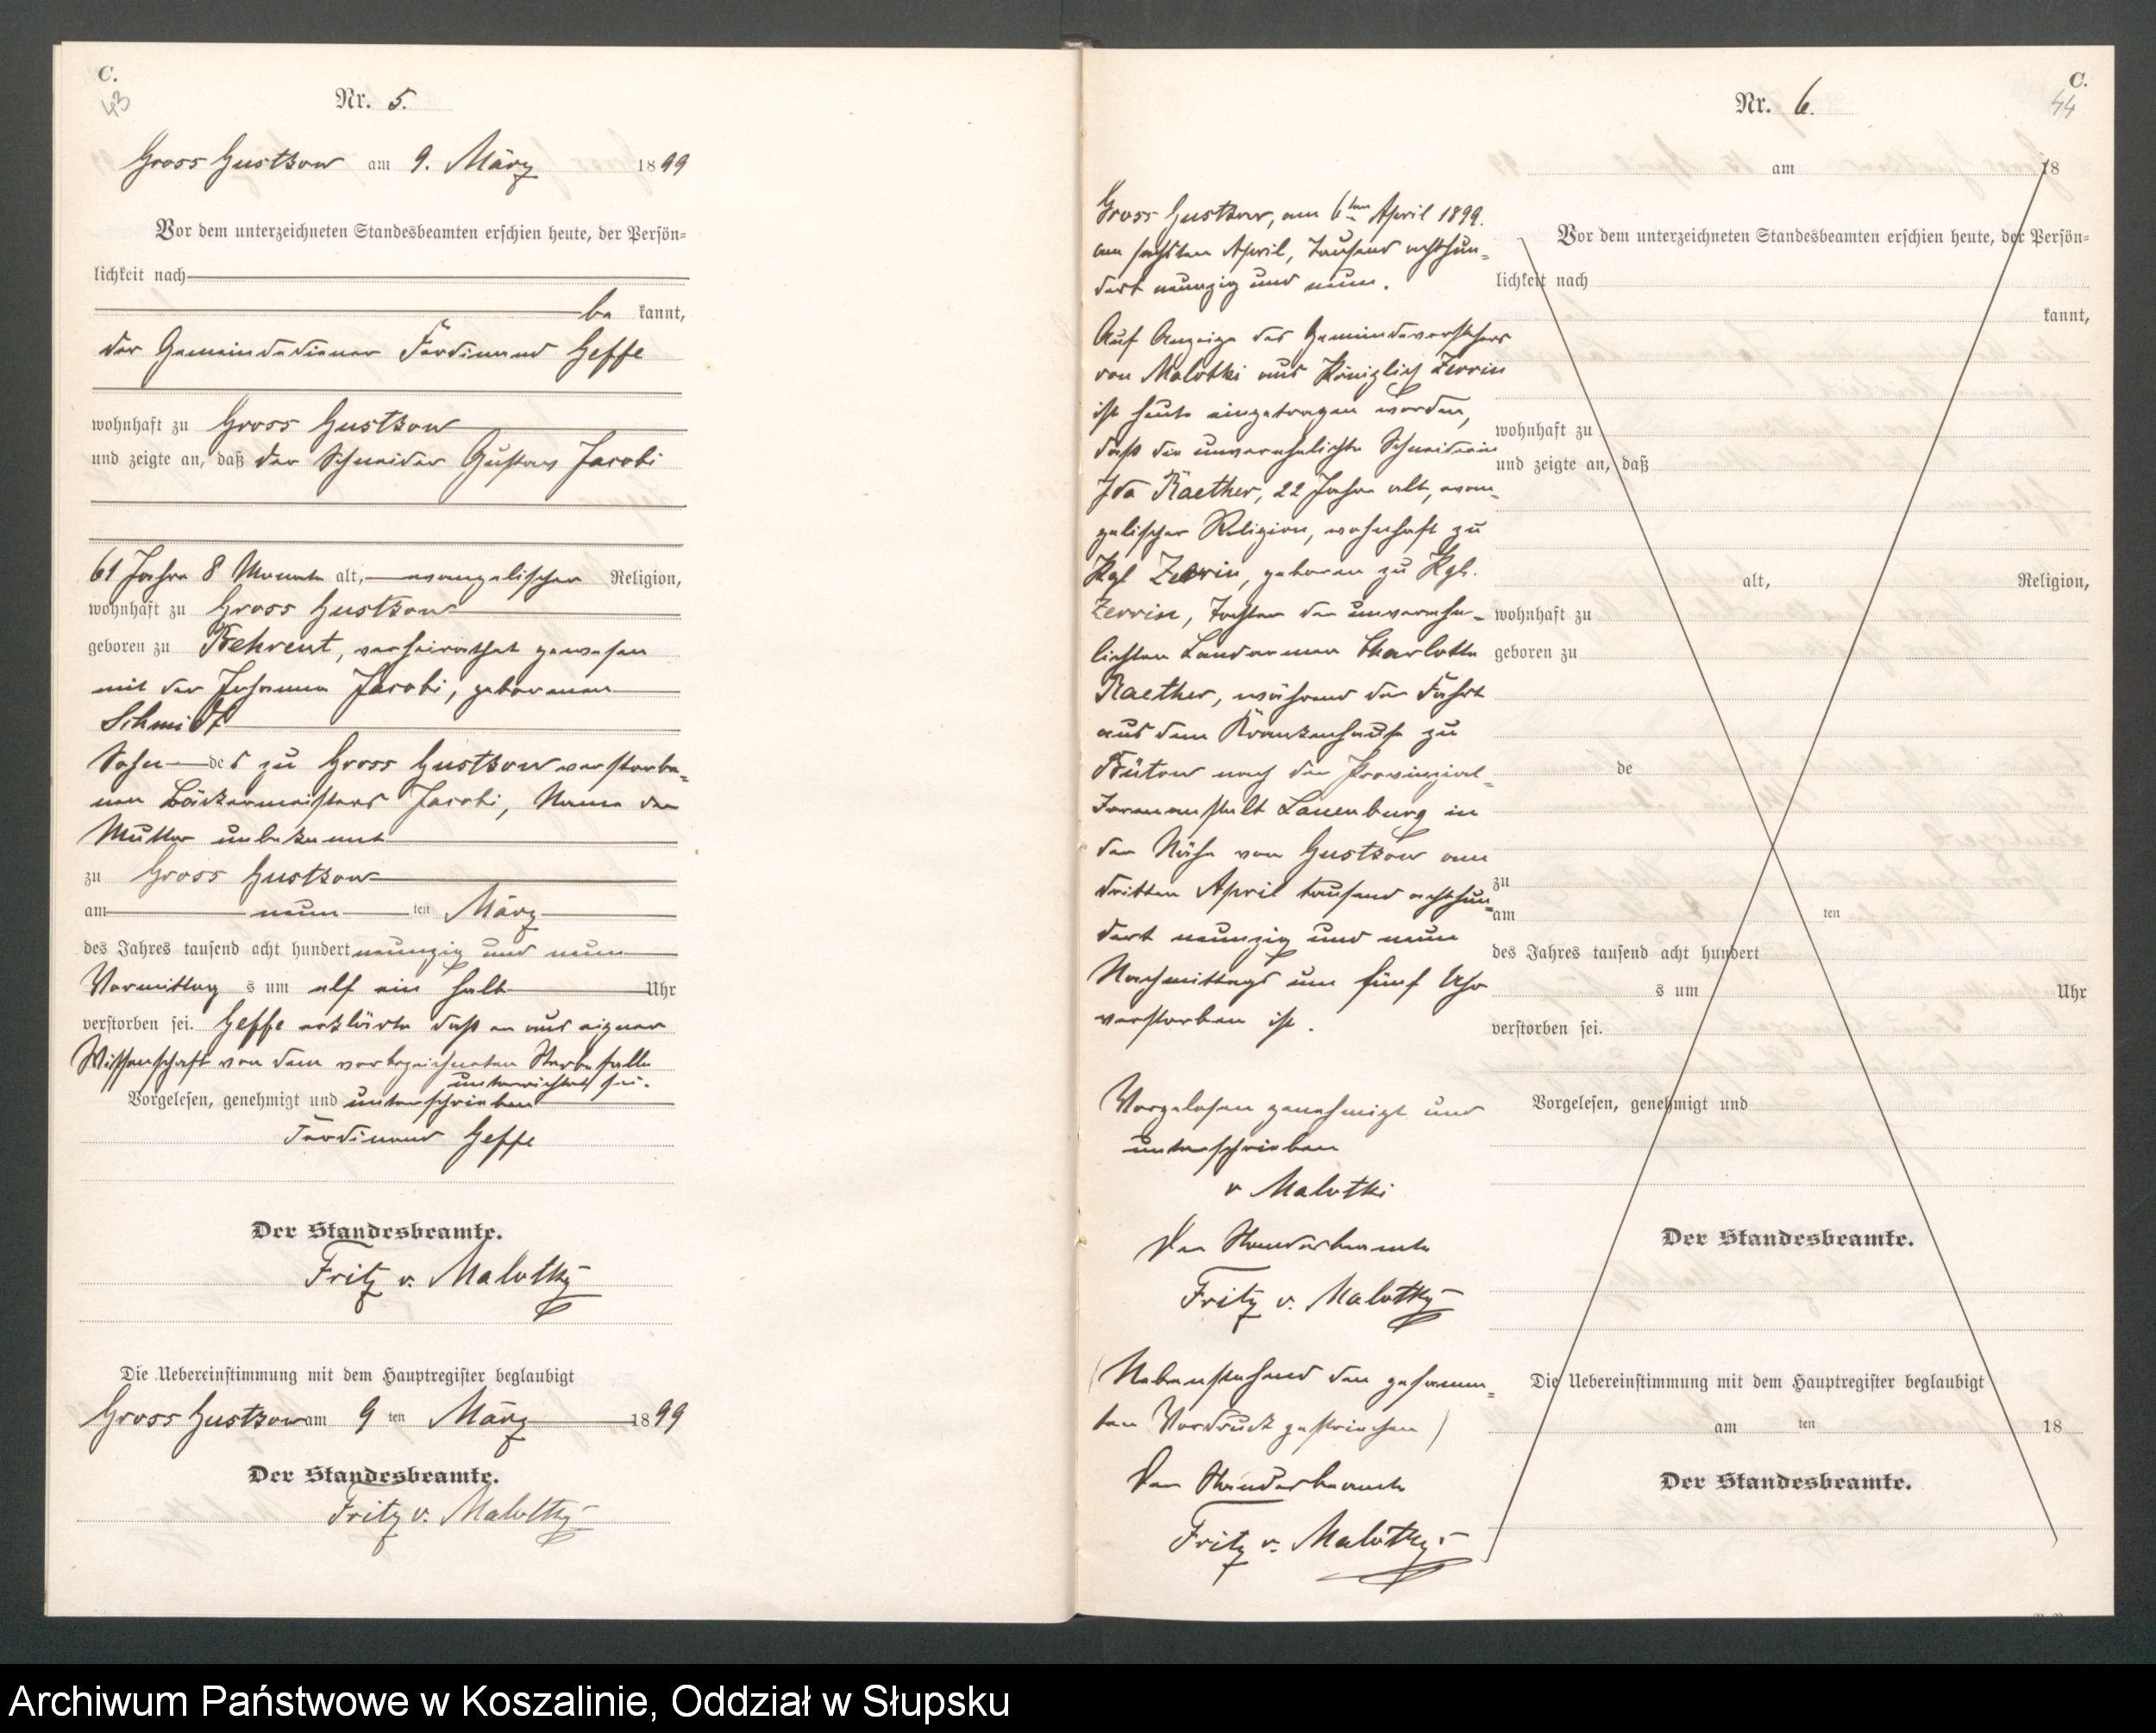 C.
43
Nr. 5.
Gross Gustkow am 9. März 1899
Vor dem unterzeichneten Standesbeamten erschien heute, der Persön-
lichkeit nach
be kannt,
der Gemeindediener Ferdinand Geffe
wohnhaft zu Gross Gustkow
und zeigte an, daß der Schneider Gustav Jacobi
61 Jahre 8 Monate alt, evangelischer Religion,
wohnhaft zu Gross Gustkow
geboren zu Behrent, verheirathet gewesen
mit der Johanna Jacobi, geborenen
Schmidt
Sohn des zu Gross Gustkow verstorbe-
nen Bäckermeisters Jacobi, Name der
Mutter unbekannt
zu Gross Gustkow
am neun ten März
des Jahres tausend acht hundert neunzig und neun
Vormittag s um elf ein halb Uhr
verstorben sei. Geffe erklärte daß er aus eigner
Wissenschaft von dem vorbezeichneten Sterbefalle
unterrichtet sei.
Vorgelesen, genehmigt und unterschrieben
Ferdinand Geffe
Der Standesbeamte.
Fritz v. Malottky
Die Uebereinstimmung mit dem Hauptregister beglaubigt
Gross Gustkow am 9 ten März 1899
Der Standesbeamte.
Fritz v. Malottky
C.
44
Nr. 6.
Gross Gustkow, am 6ten April 1899.
am sechsten April, tausend achthun-
dert neunzig und neun.
Auf Anzeige des Gemeindevorstehers
von Malottki aus Königlich Zerrin
ist heute eingetragen worden,
daß die unverehelichte Schneiderin
Ida Raether, 22 Jahre alt, evan-
gelischer Religion, wohnhaft zu
Kgl Zerrin, geboren zu Kgl.
Zerrin, Tochter der unverehe-
lichten Landarmen Charlotte
Raether, während der Fahrt
aus dem Krankenhause zu
Bütow nach der Provinzial-
Irrenanstalt Lauenburg in
der Nähe von Gustkow am
dritten April tausend achthun-
dert neunzig und neun
Nachmittags um fünf Uhr
verstorben ist.
Vorgelesen genehmigt und
unterschrieben
v Malottki
Der Standesbeamte
Fritz v. Malottky
(Nebenstehend den gesamm-
ten Vordruck gestrichen)
Der Standesbeamte
Fritz v. Malottky
am 18
Vor dem unterzeichneten Standesbeamten erschien heute, der Persön-
lichkeit nach
kannt,
wohnhaft zu
und zeigte an, daß
alt, Religion,
wohnhaft zu
geboren zu
de
zu
am ten
des Jahres tausend acht hundert
s um Uhr
verstorben sei.
Vorgelesen, genehmigt und
Der Standesbeamte.
Die Uebereinstimmung mit dem Hauptregister beglaubigt
am ten 18
Der Standesbeamte.
Archiwum Państwowe w Koszalinie, Oddział w Słupsku